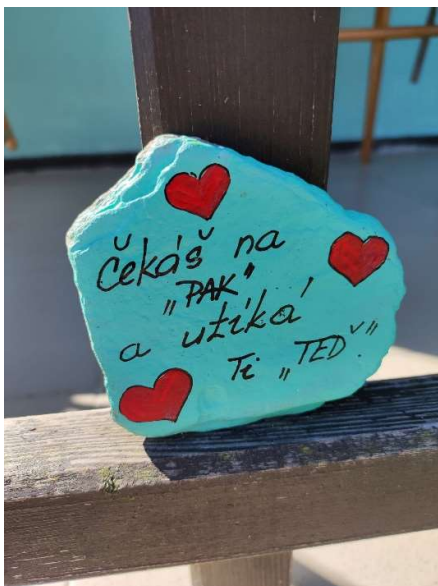 čekáš na
„PAK"
a utíká
Ti „TEĎ".